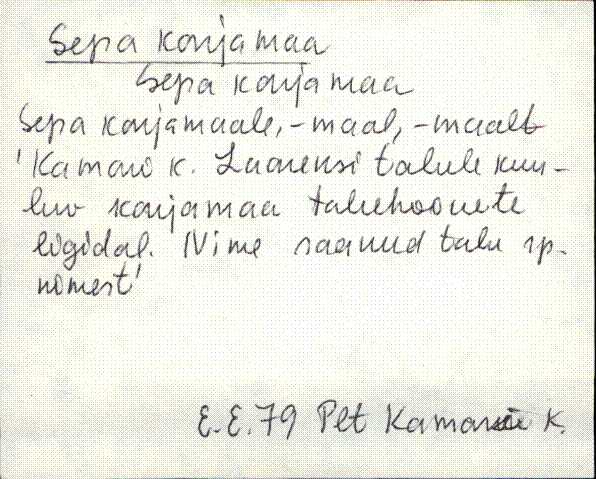 Sepa karjamaa
Sepa karjamaa
Sepa karjamaale, -maal, -maalt
'Kamari k. Laarensi talule kuu-
luv karjamaa taluhoonete
ligidal. Nime saanud talu rp.
nimest'
E.E.79 Plt Kamari k.